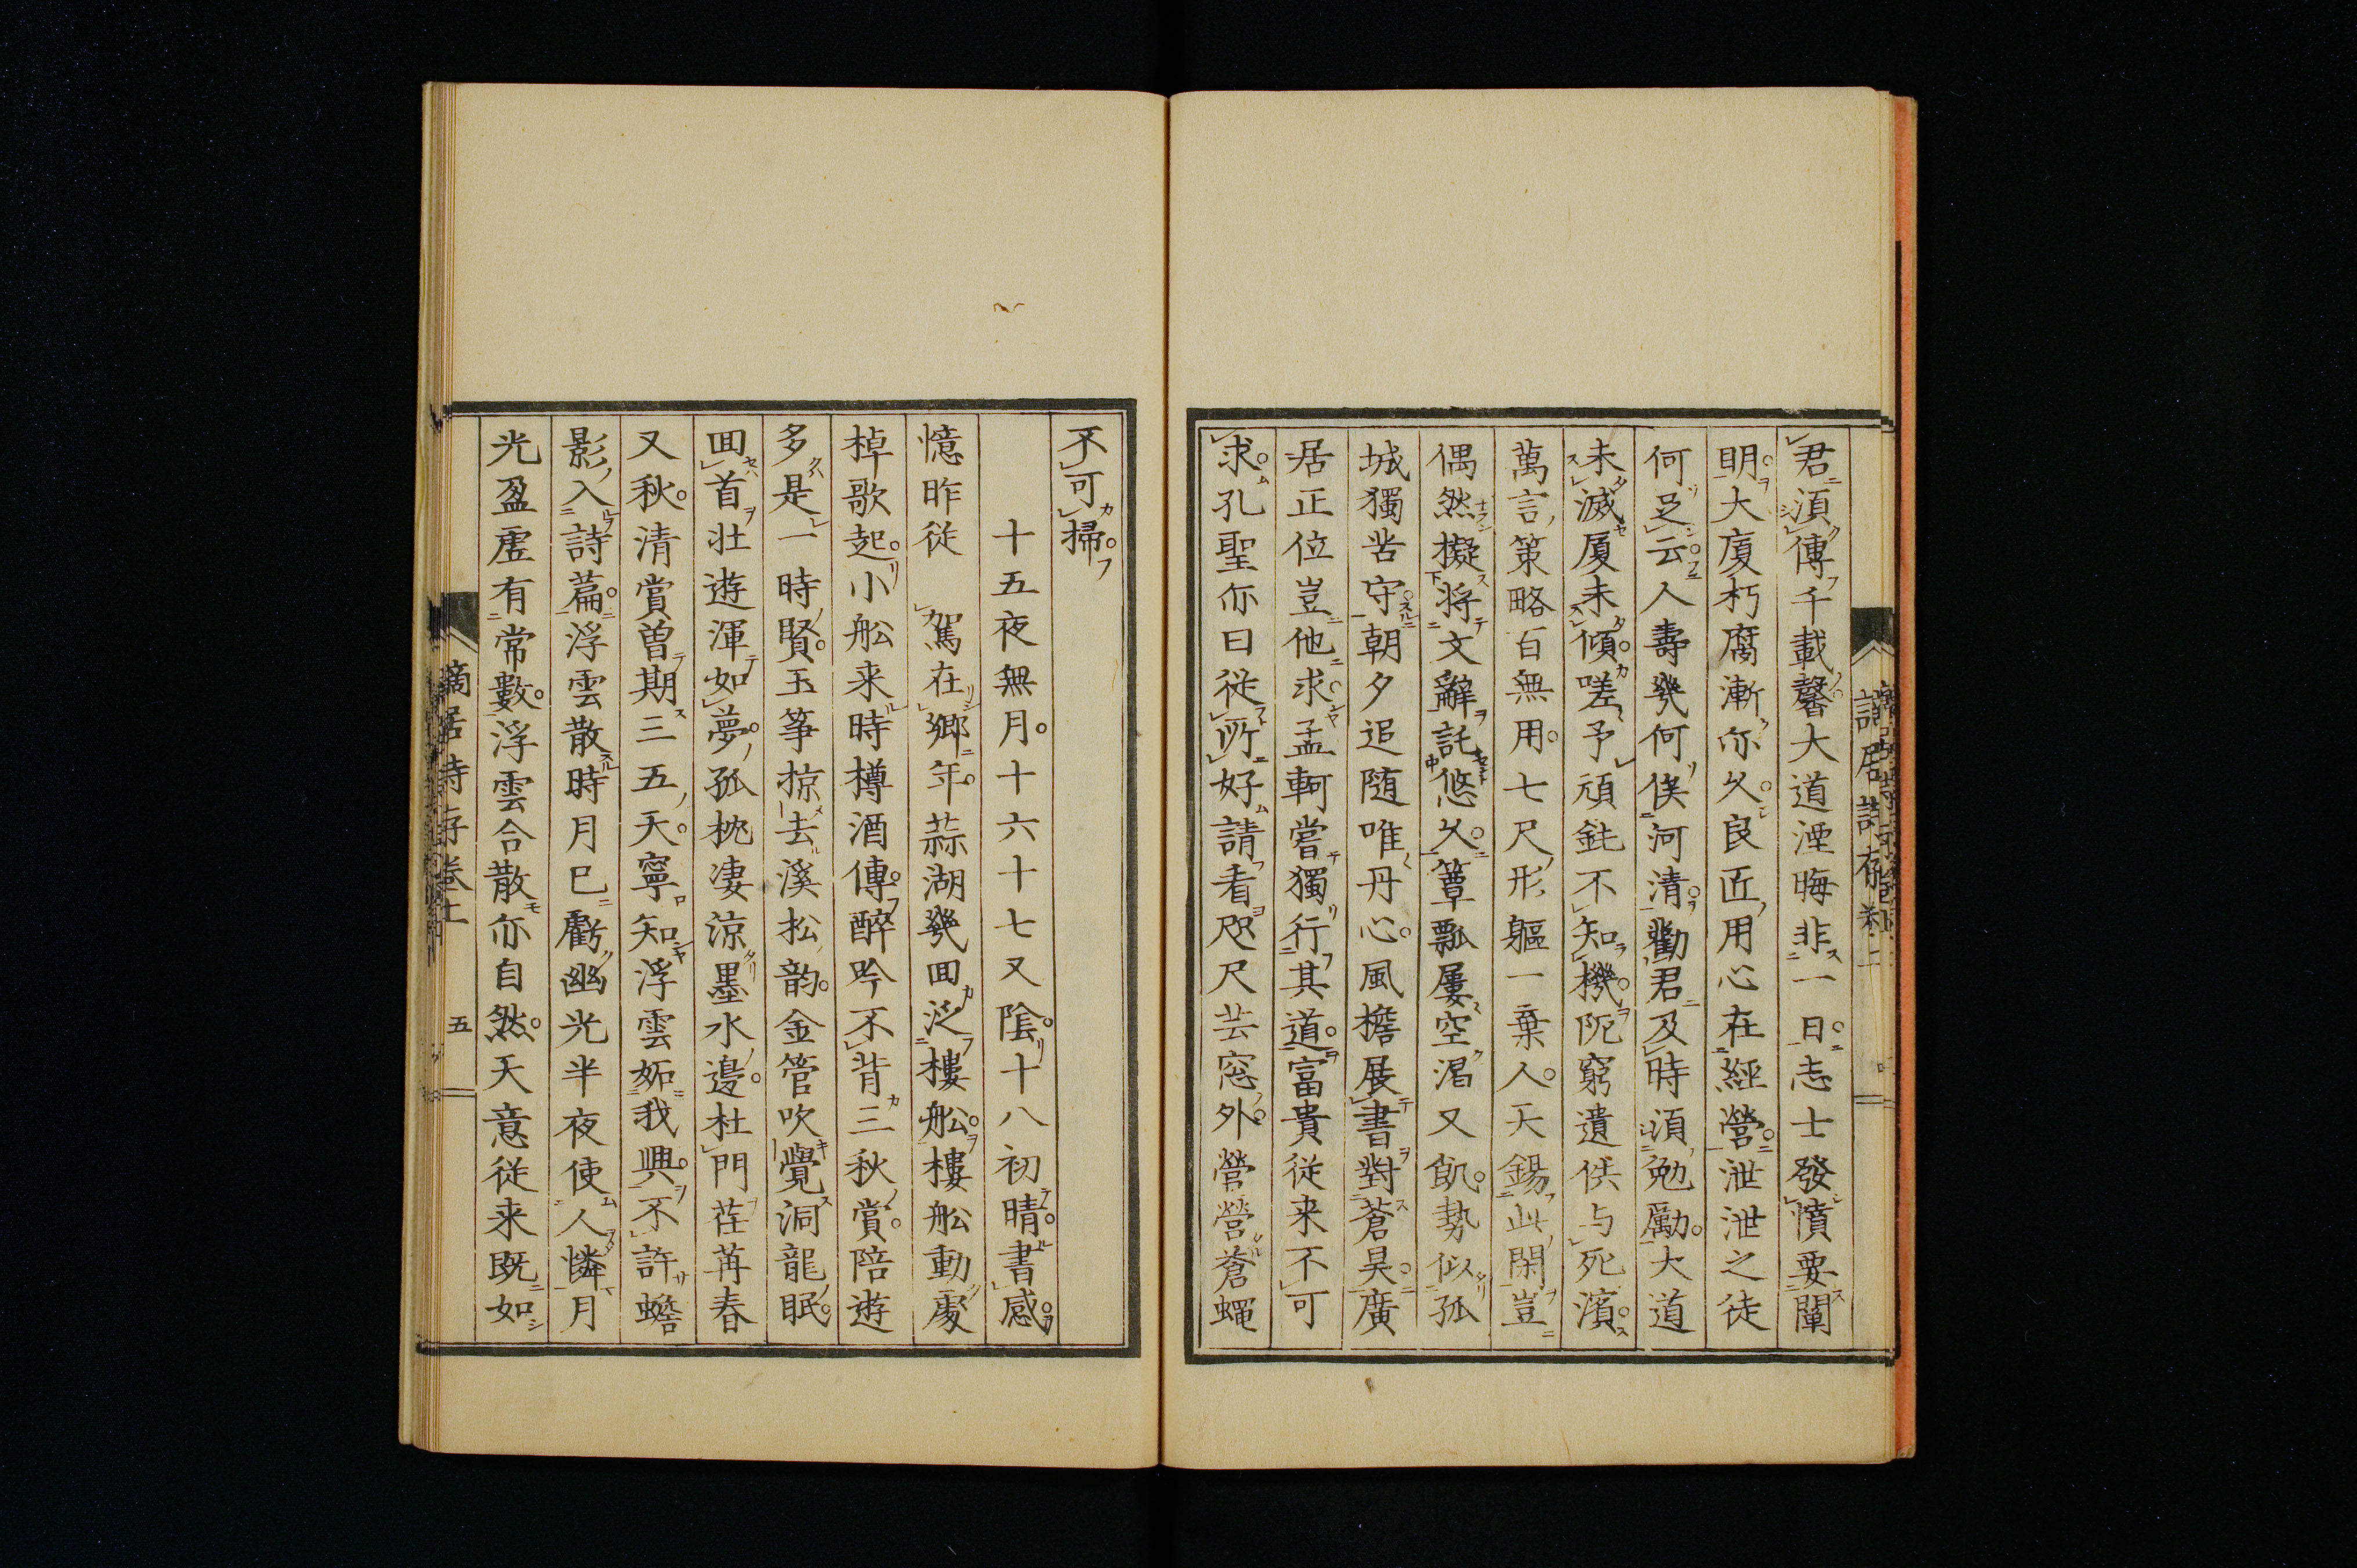 君須傳千載馨大道湮晦非一日志士發憤要闡
明大廈朽腐漸亦久良匠用心在經營泄泄之徒
何足云人壽幾何俟河清勸君及時須勉勵大道
未滅厦未傾嗟予頑鈍不知機阨窮遺佚与死濱
萬言策略百無用七尺形軀一棄人天錫此閑豈
偶然擬將文辭託悠久簞瓢屢空渴又飢勢似孤
城獨苦守朝夕追随唯丹心風檐展書對蒼昊廣
居正位豈他求孟軻嘗獨行其道富貴從来不可
求孔聖亦曰從所好請看咫尺芸窓外營營蒼蠅
不可掃
十五夜無月十六十七又陰十八初晴書感
憶昨從 駕在鄉年蒜湖幾回泛樓舩樓舩動處
棹歌起小舩来時樽酒傳醉吟不背三秋賞陪遊
多是一時賢玉筝掠去溪松韵金管吹覺洞龍眠
回首壮遊渾如夢孤枕凄涼墨水邊杜門荏苒春
又秋清賞曽期三五天寧知浮雲妬我興不許蟾
影入詩篇浮雲散時月已虧幽光半夜使人憐月
光盈虚有常數浮雲合散亦自然天意從来既如
謫居詩存卷上 五